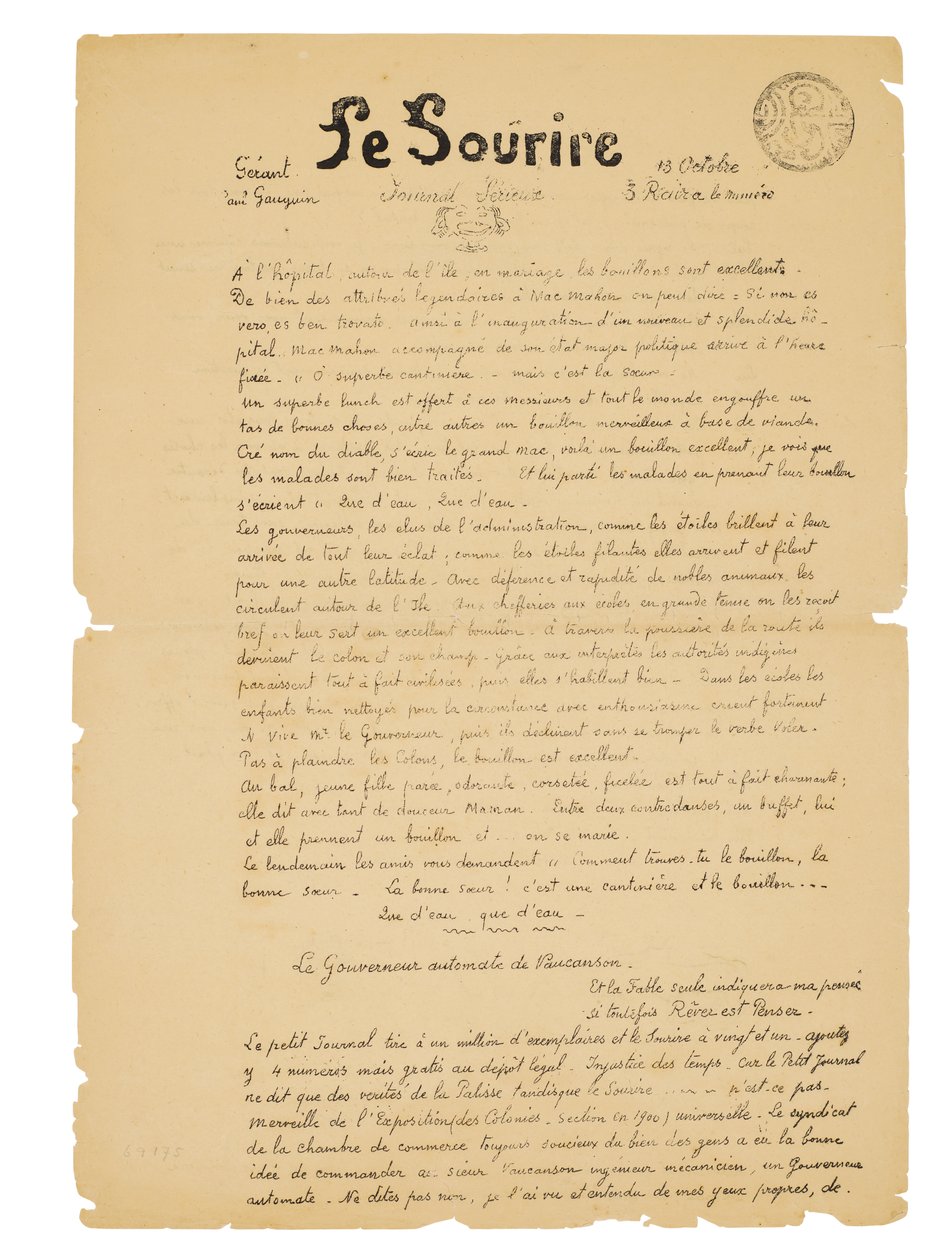 Le Sourire
Gérant
Paul Gauguin
Journal Sérieux.
13 Octobre
3 Raira le numéro
À l'hôpital, autour de l'île, en mariage, les bouillons sont excellents.
De bien des attribués legendaires à Mac Mahon on peut dire = Si non es
vero, es ben trovato. ainsi à l'inauguration d'un nouveau et splendide hô-
pital.. Mac Mahon accompagné de son état major politique arrive à l'heure
fixée - « O superbe cantinière. - mais c'est la Sœur -
Un superbe lunch est offert à ces messieurs et tout le monde engouffre un
tas de bonnes choses, entre autres un bouillon merveilleux à base de viande.
Cré nom du diable, s'écrie le grand Mac, voilà un bouillon excellent; je vois que
les malades sont bien traités. Et lui parti les malades en prenant leur bouillon
s'écrient « Que d'eau, Que d'eau -
Les gouverneurs, les élus de l'administration, comme les étoiles brillent à leur
arrivée de tout leur éclat; comme les étoiles filantes elles arrivent et filent
pour une autre latitude - Avec déférence et rapidité de nobles animaux les
circulent autour de l'Ile. Aux chefferies aux écoles, en grande tenue on les reçoit
bref on leur sert un excellent bouillon. À travers la poussière de la route ils
devinent le colon et son champ - Grâce aux interprètes les autorités indigènes
paraissent tout à fait civilisées, puis elles s'habillent bien - Dans les écoles les
enfants bien nettoyés pour la circonstance avec enthousiasme crient fortement
« Vive Mr le Gouverneur, puis ils déclinent sans se tromper le verbe Voler.
Pas à plaindre les Colons, le bouillon est excellent.
Au bal, jeune fille parée, odorante, corsetée, ficelée est tout à fait charmante;
elle dit avec tant de douceur Maman. Entre deux contredanses, un buffet, lui
et elle prennent un bouillon et ... on se marie.
Le lendemain les amis vous demandent « Comment trouves-tu le bouillon, la
bonne sœur - La bonne sœur! c'est une cantinière et le bouillon ---
Que d'eau, que d'eau -
Le Gouverneur automate de Vaucanson.
Et la Fable seule indiquera ma pensée
si toutefois Rêver est Penser -
Le petit Journal tire à un million d'exemplaires et le Sourire à vingt et un - ajoutez
y 4 numéros mais gratis au dépôt légal. Injustice des temps - Car le Petit Journal
ne dit que des verités de la Palisse tandisque le Sourire .... n'est-ce pas -
Merveille de l'Exposition (des Colonies - section en 1900) universelle - Le syndicat
de la chambre de commerce toujours soucieux du bien des gens a eu la bonne
idée de commander au sieur Vaucanson ingénieur mécanicien, un Gouverneur
automate - Ne dites pas non, je l'ai vu et entendu de mes yeux propres, de.
69175